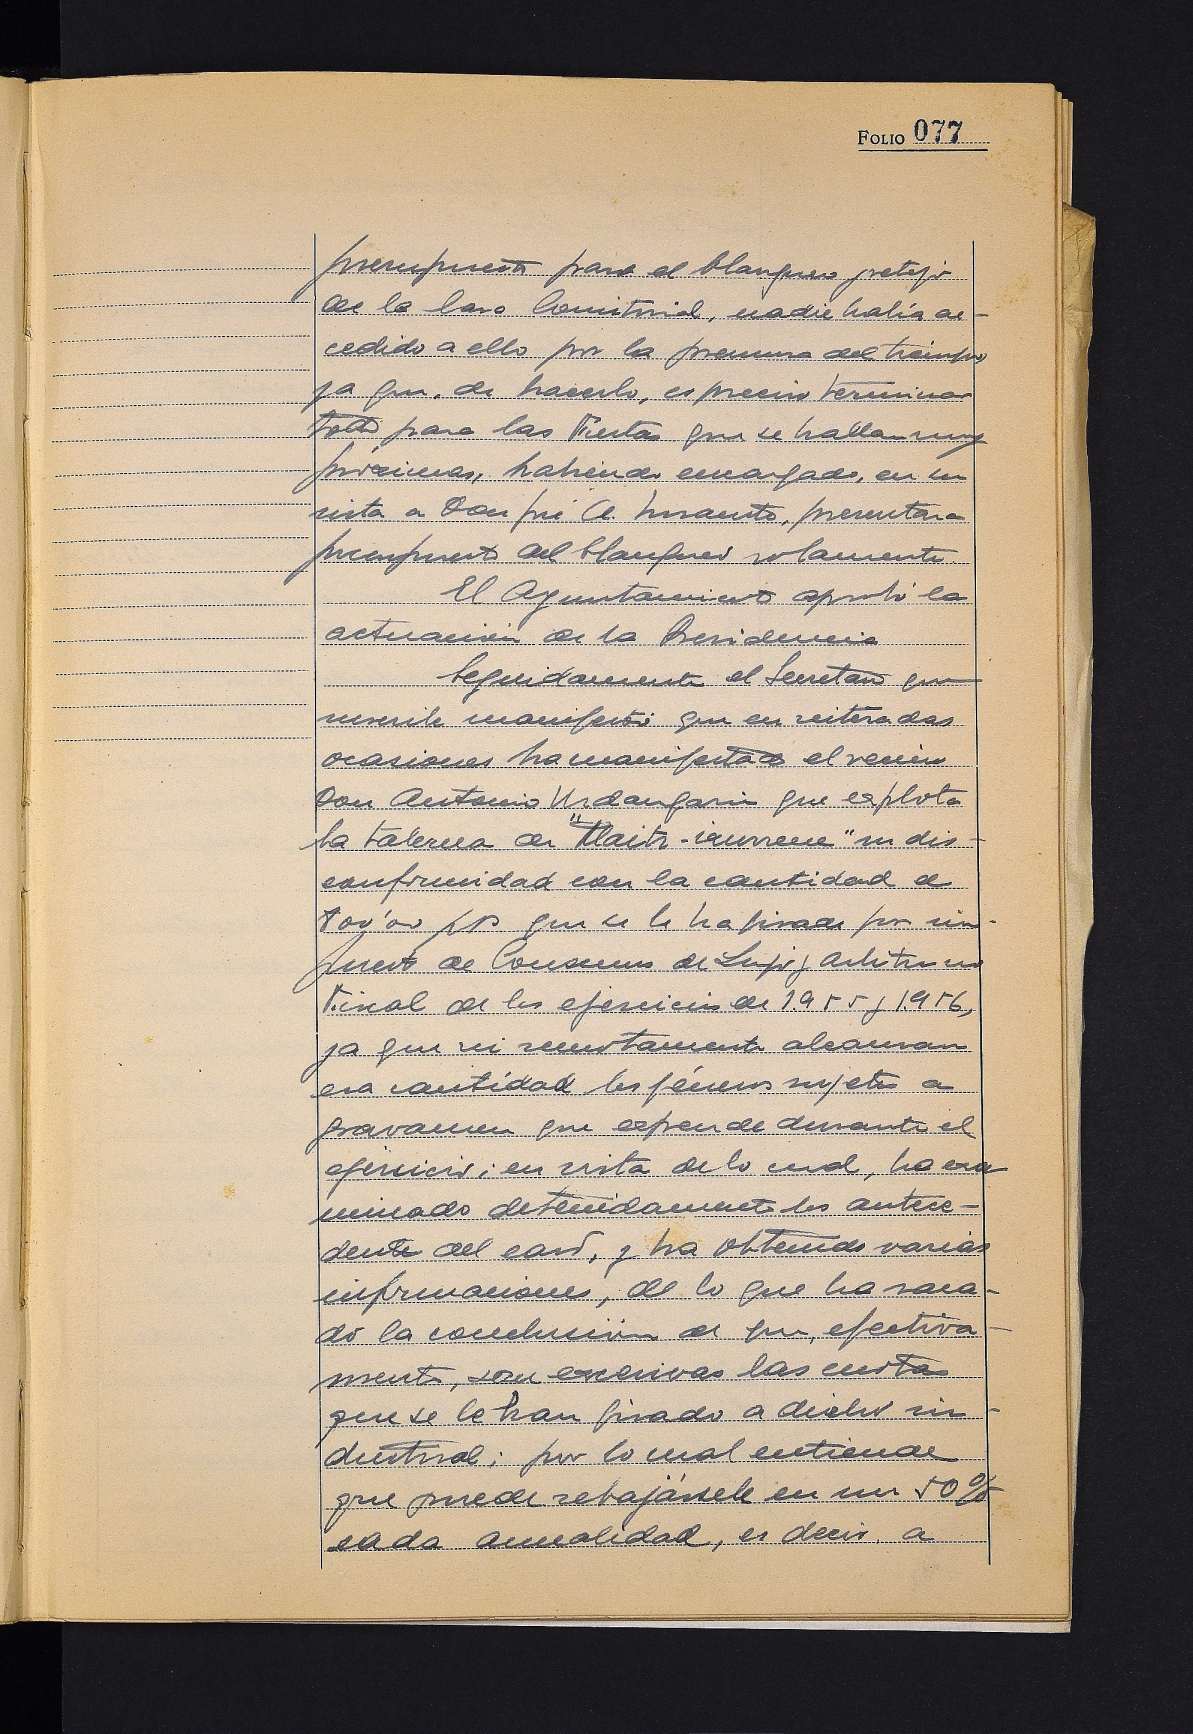 FOLIO 077
presupuesto para el blanqueo y retejo
de la Casa Consistorial, nadie había ac-
cedido a ello por la premura del tiempo,
ya que, de hacerlo, es preciso terminar
todo para las Fiestas que se hallan muy
próximas, habiendo encargado, en su
vista a Don José A. presentara
presupuesto del blanqueo solamente
El Ayuntamiento aprobó la
actuación de la Presidencia
Seguidamente el Secretario que
suscribe manifestó que en reiteradas
ocasiones ha manifestado el vecino
Don Antonio Urdangarin que explota
la taberna de "
su dis-
conformidad con la cantidad de
pts que se le ha fijado por im-
puesto de Consumos de Lujo y arbitrio no
Fiscal de los ejercicios de 1.955 y 1.956,
ya que ni remotamente alcanzan
esa cantidad los géneros sujetos a
gravamen que expende durante el
ejercicio; en vista de lo cual, ha exa
minado detenidamente los antece-
dentes del caso, y ha obtenido varias
informaciones, de lo que ha saca-
do la conclusión de que, efectiva-
mente, son excesivas las cuotas
que se le han fijado a dicho in-
dustrial; por lo cual entiende
que puede rebajársele en un 50%
cada anualidad, es decir, a